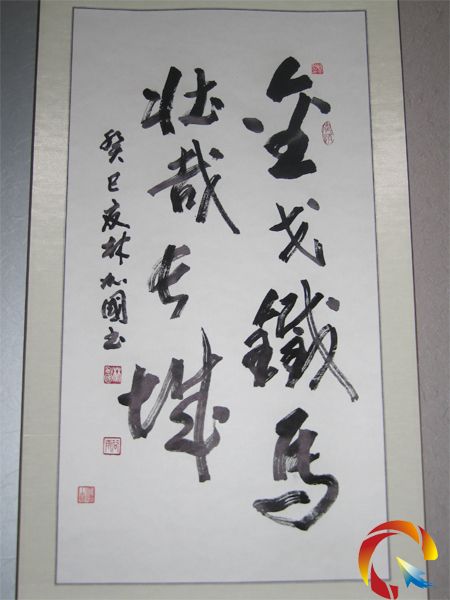 金戈鐵馬
壯哉長城
癸巳夜林加國書